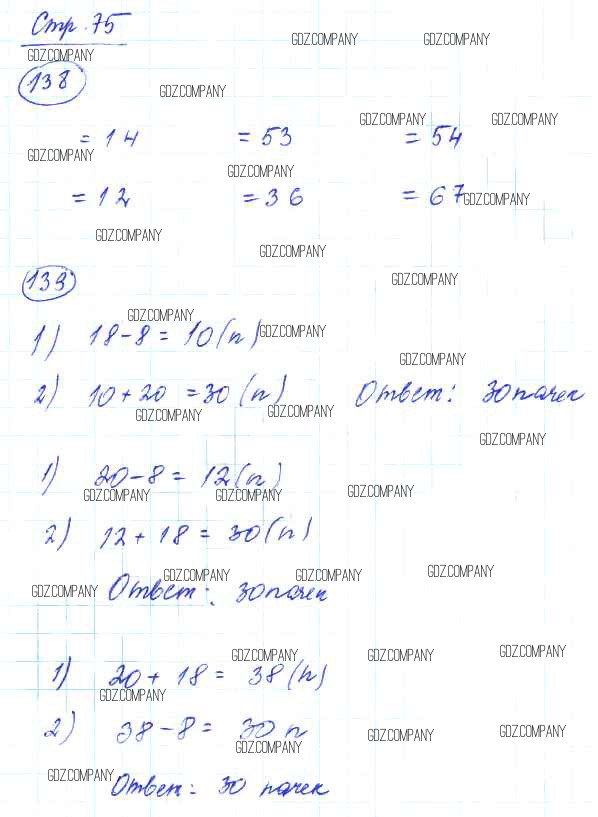 Стр. 75
GDZ.COMPANY GDZ.COMPANY
GDZ.COMPANY
138
GDZ.COMPANY
GDZ.COMPANY GDZ.COMPANY
= 14 = 53 = 54
GDZ.COMPANY
GDZ.COMPANY
= 12 = 36 = 67
GDZ.COMPANY
GDZ.COMPANY
GDZ.COMPANY
139
GDZ.COMPANY
GDZ.COMPANY
1) 18-8 = 10(п)
GDZ.COMPANY
GDZ.COMPANY
2) 10+20 =30 (п) Ответ: 30 пачек
GDZ.COMPANY GDZ.COMPANY
GDZ.COMPANY
1) 20-8 = 12(п)
GDZ.COMPANY GDZ.COMPANY GDZ.COMPANY
2) 12 + 18 = 30(п)
GDZ.COMPANY GDZ.COMPANY GDZ.COMPANY
GDZ.COMPANY
Ответ: 30 пачек
GDZ.COMPANY GDZ.COMPANY GDZ.COMPANY
1) 20 + 18 = 38(п)
GDZ.COMPANY
2) 38-8 = 30 п
GDZ.COMPANY GDZ.COMPANY GDZ.COMPANY
GDZ.COMPANY
Ответ: 30 пачек